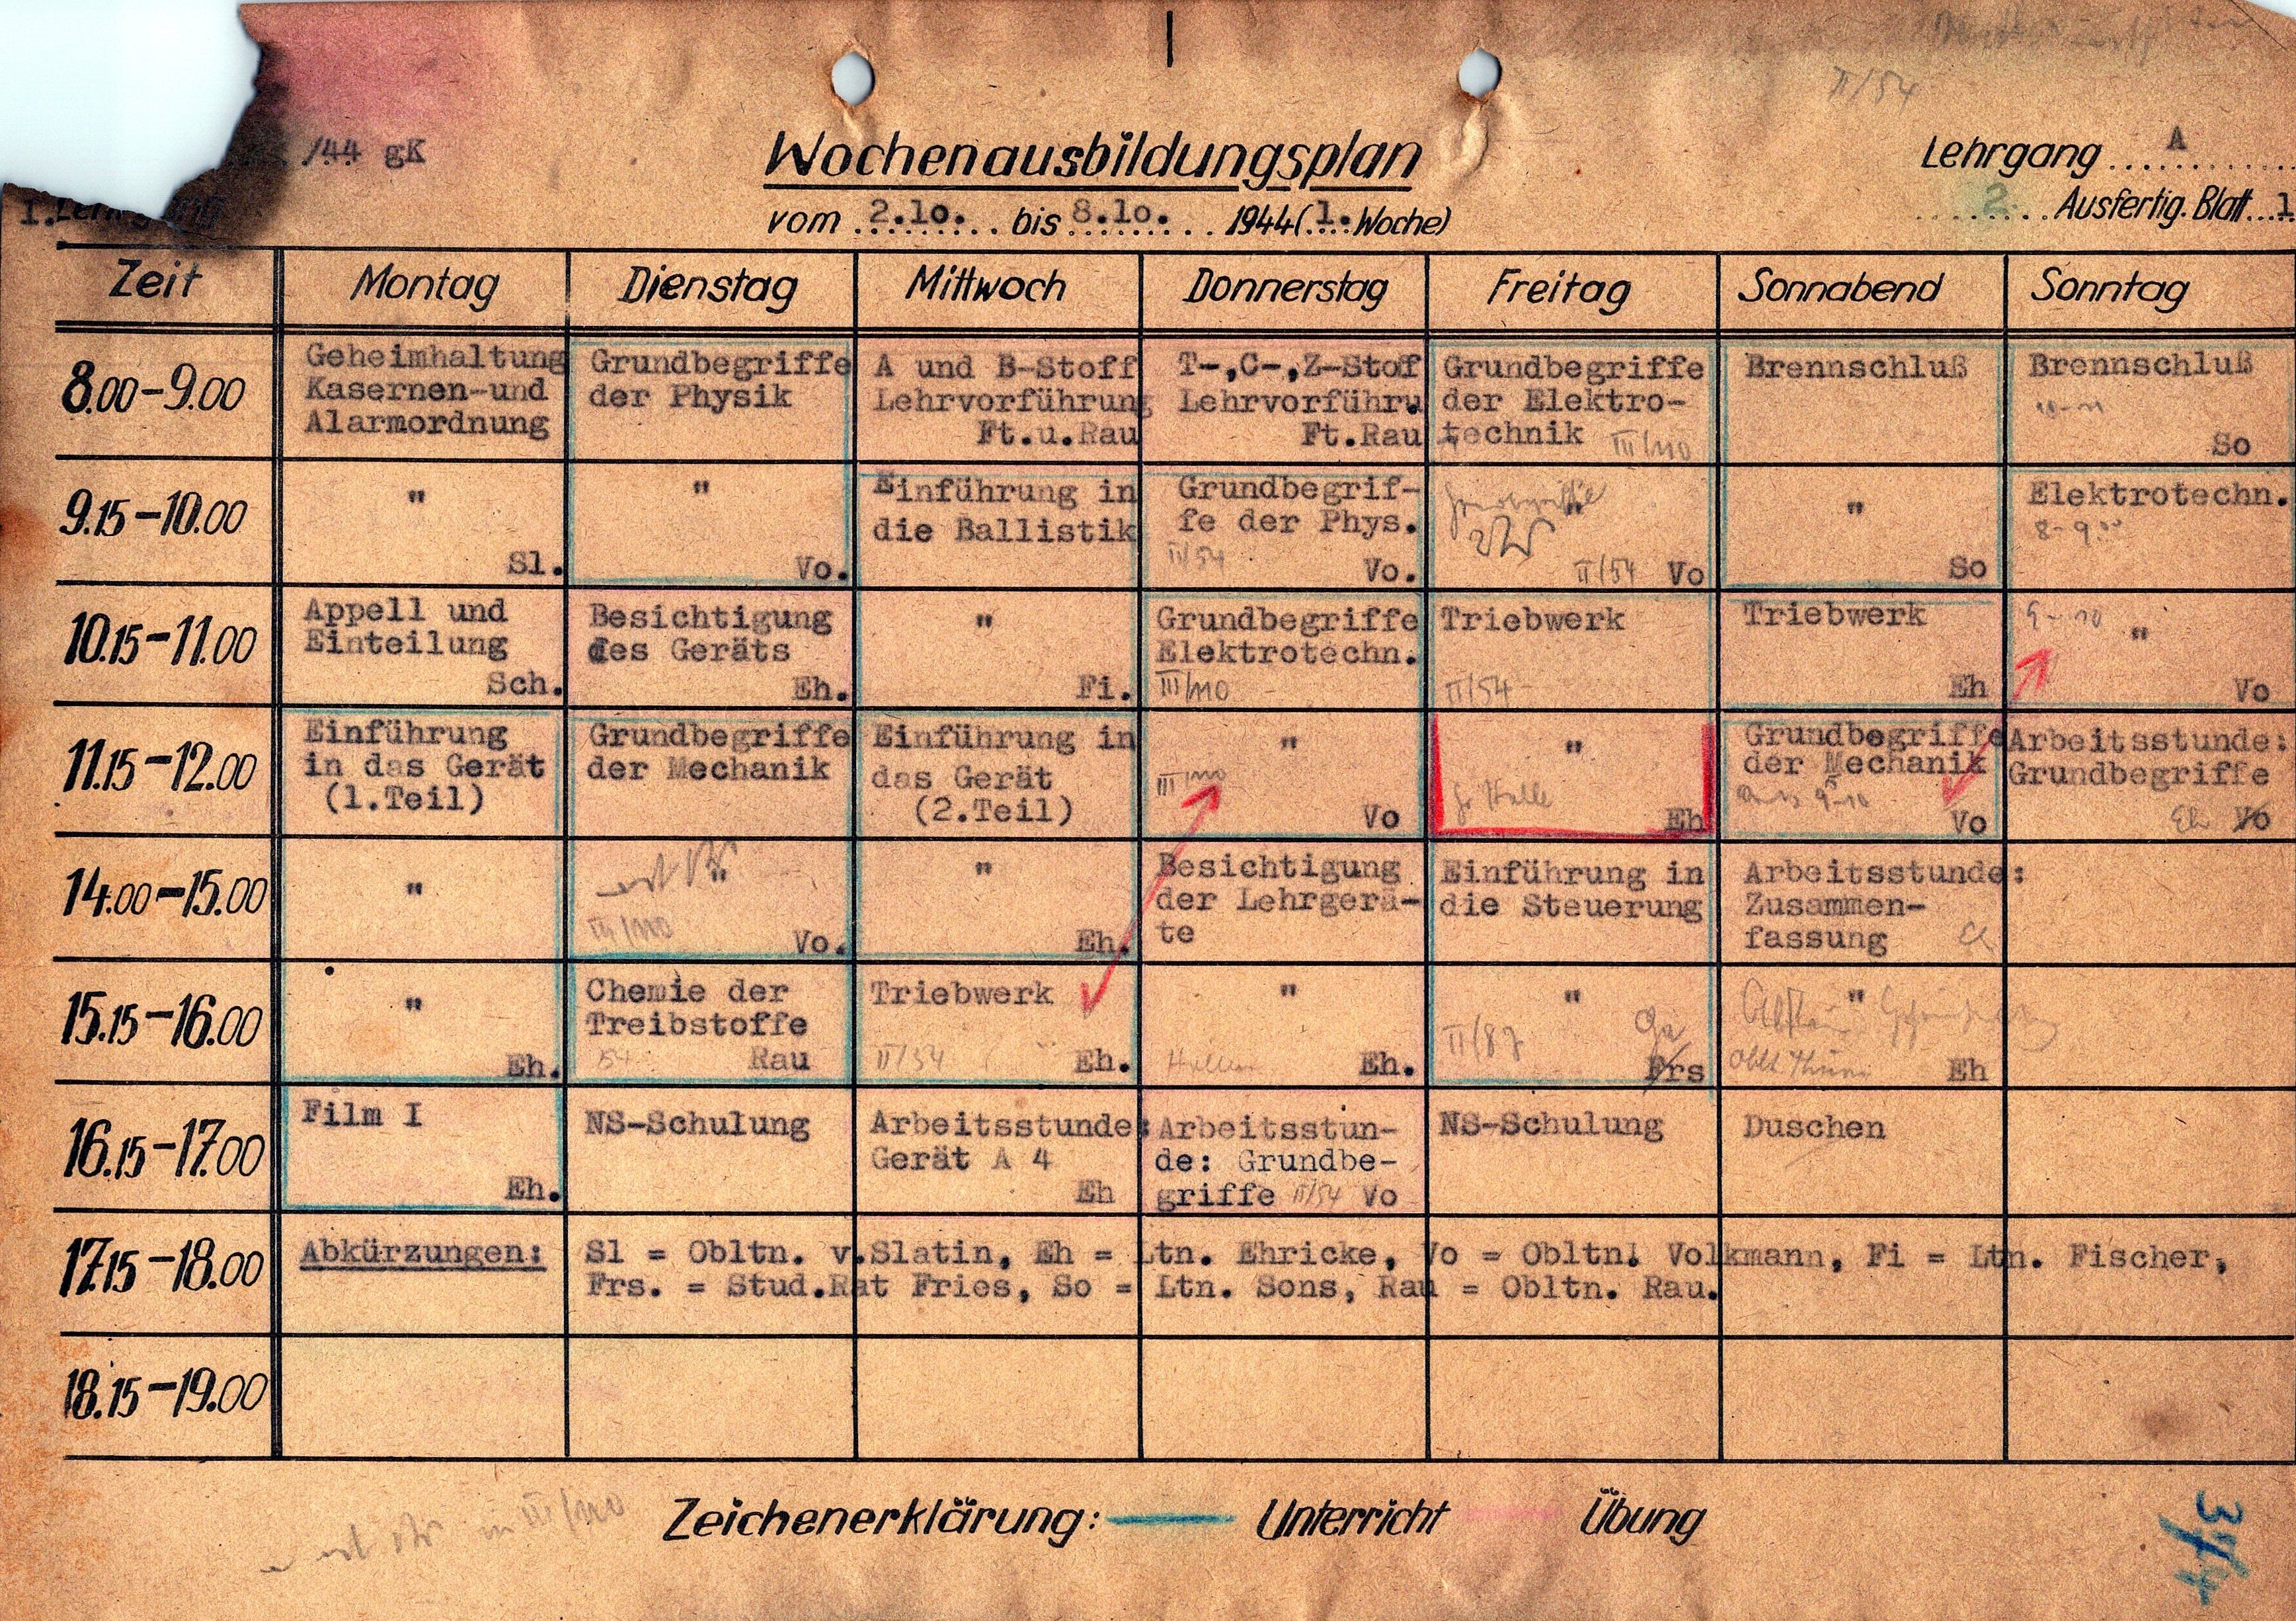 II/54
/44 gK
Wochenausbildungsplan
Lehrgang A
I.Lehrgang
vom 2.10. bis 8.10. 1944 (1. Woche)
2. Ausfertig. Blatt 1
Zeit Montag Dienstag Mittwoch Donnerstag Freitag Sonnabend Sonntag
8.00-9.00
Geheimhaltung
Kasernen-und
Alarmordnung
Grundbegriffe
der Physik
A und B-Stoff
Lehrvorführung
Ft.u.Rau
T-,C-,Z-Stof
Lehrvorführu
Ft.Rau
Grundbegriffe
der Elektro-
technik III/110
Brennschluß
Brennschluß
10-11
So
9.15-10.00
"
Sl.
"
Vo.
Einführung in
die Ballistik
Grundbegrif-
fe der Phys.
II/54 Vo.
"
II/54 Vo
"
So
Elektrotechn.
8-9.00
10.15-11.00
Appell und
Einteilung
Sch.
Besichtigung
des Geräts
Eh.
"
Fi.
Grundbegriffe
Elektrotechn.
III/110
Triebwerk
II/54
Triebwerk
Eh
9-10 "
Vo
11.15-12.00
Einführung
in das Gerät
(1.Teil)
Grundbegriffe
der Mechanik
Einführung in
das Gerät
(2.Teil)
"
III/110
Vo
"
Halle
Eh
Grundbegriffe
der Mechanik
9-10
Vo
Arbeitsstunde:
Grundbegriffe
Eh Vo
14.00-15.00
"
"
III/110
Vo.
"
Eh.
Besichtigung
der Lehrgerä-
te
Einführung in
die Steuerung
Arbeitsstunde:
Zusammen-
fassung
15.15-16.00
"
Eh.
Chemie der
Treibstoffe
54 Rau
Triebwerk
II/54 Eh.
"
Eh.
"
II/87
Frs
"
Eh
16.15-17.00
Film I
Eh.
NS-Schulung
Arbeitsstunde:
Gerät A 4
Eh
Arbeitsstun-
de: Grundbe-
griffe II/54 Vo
NS-Schulung
Duschen
17.15-18.00
Abkürzungen:
Sl = Obltn. v.Slatin, Eh = Ltn. Ehricke, Vo = Obltn. Volkmann, Fi = Ltn. Fischer,
Frs. = Stud.Rat Fries, So = Ltn. Sons, Rau = Obltn. Rau.
18.15-19.00
in III/110
Zeichenerklärung: Unterricht Übung